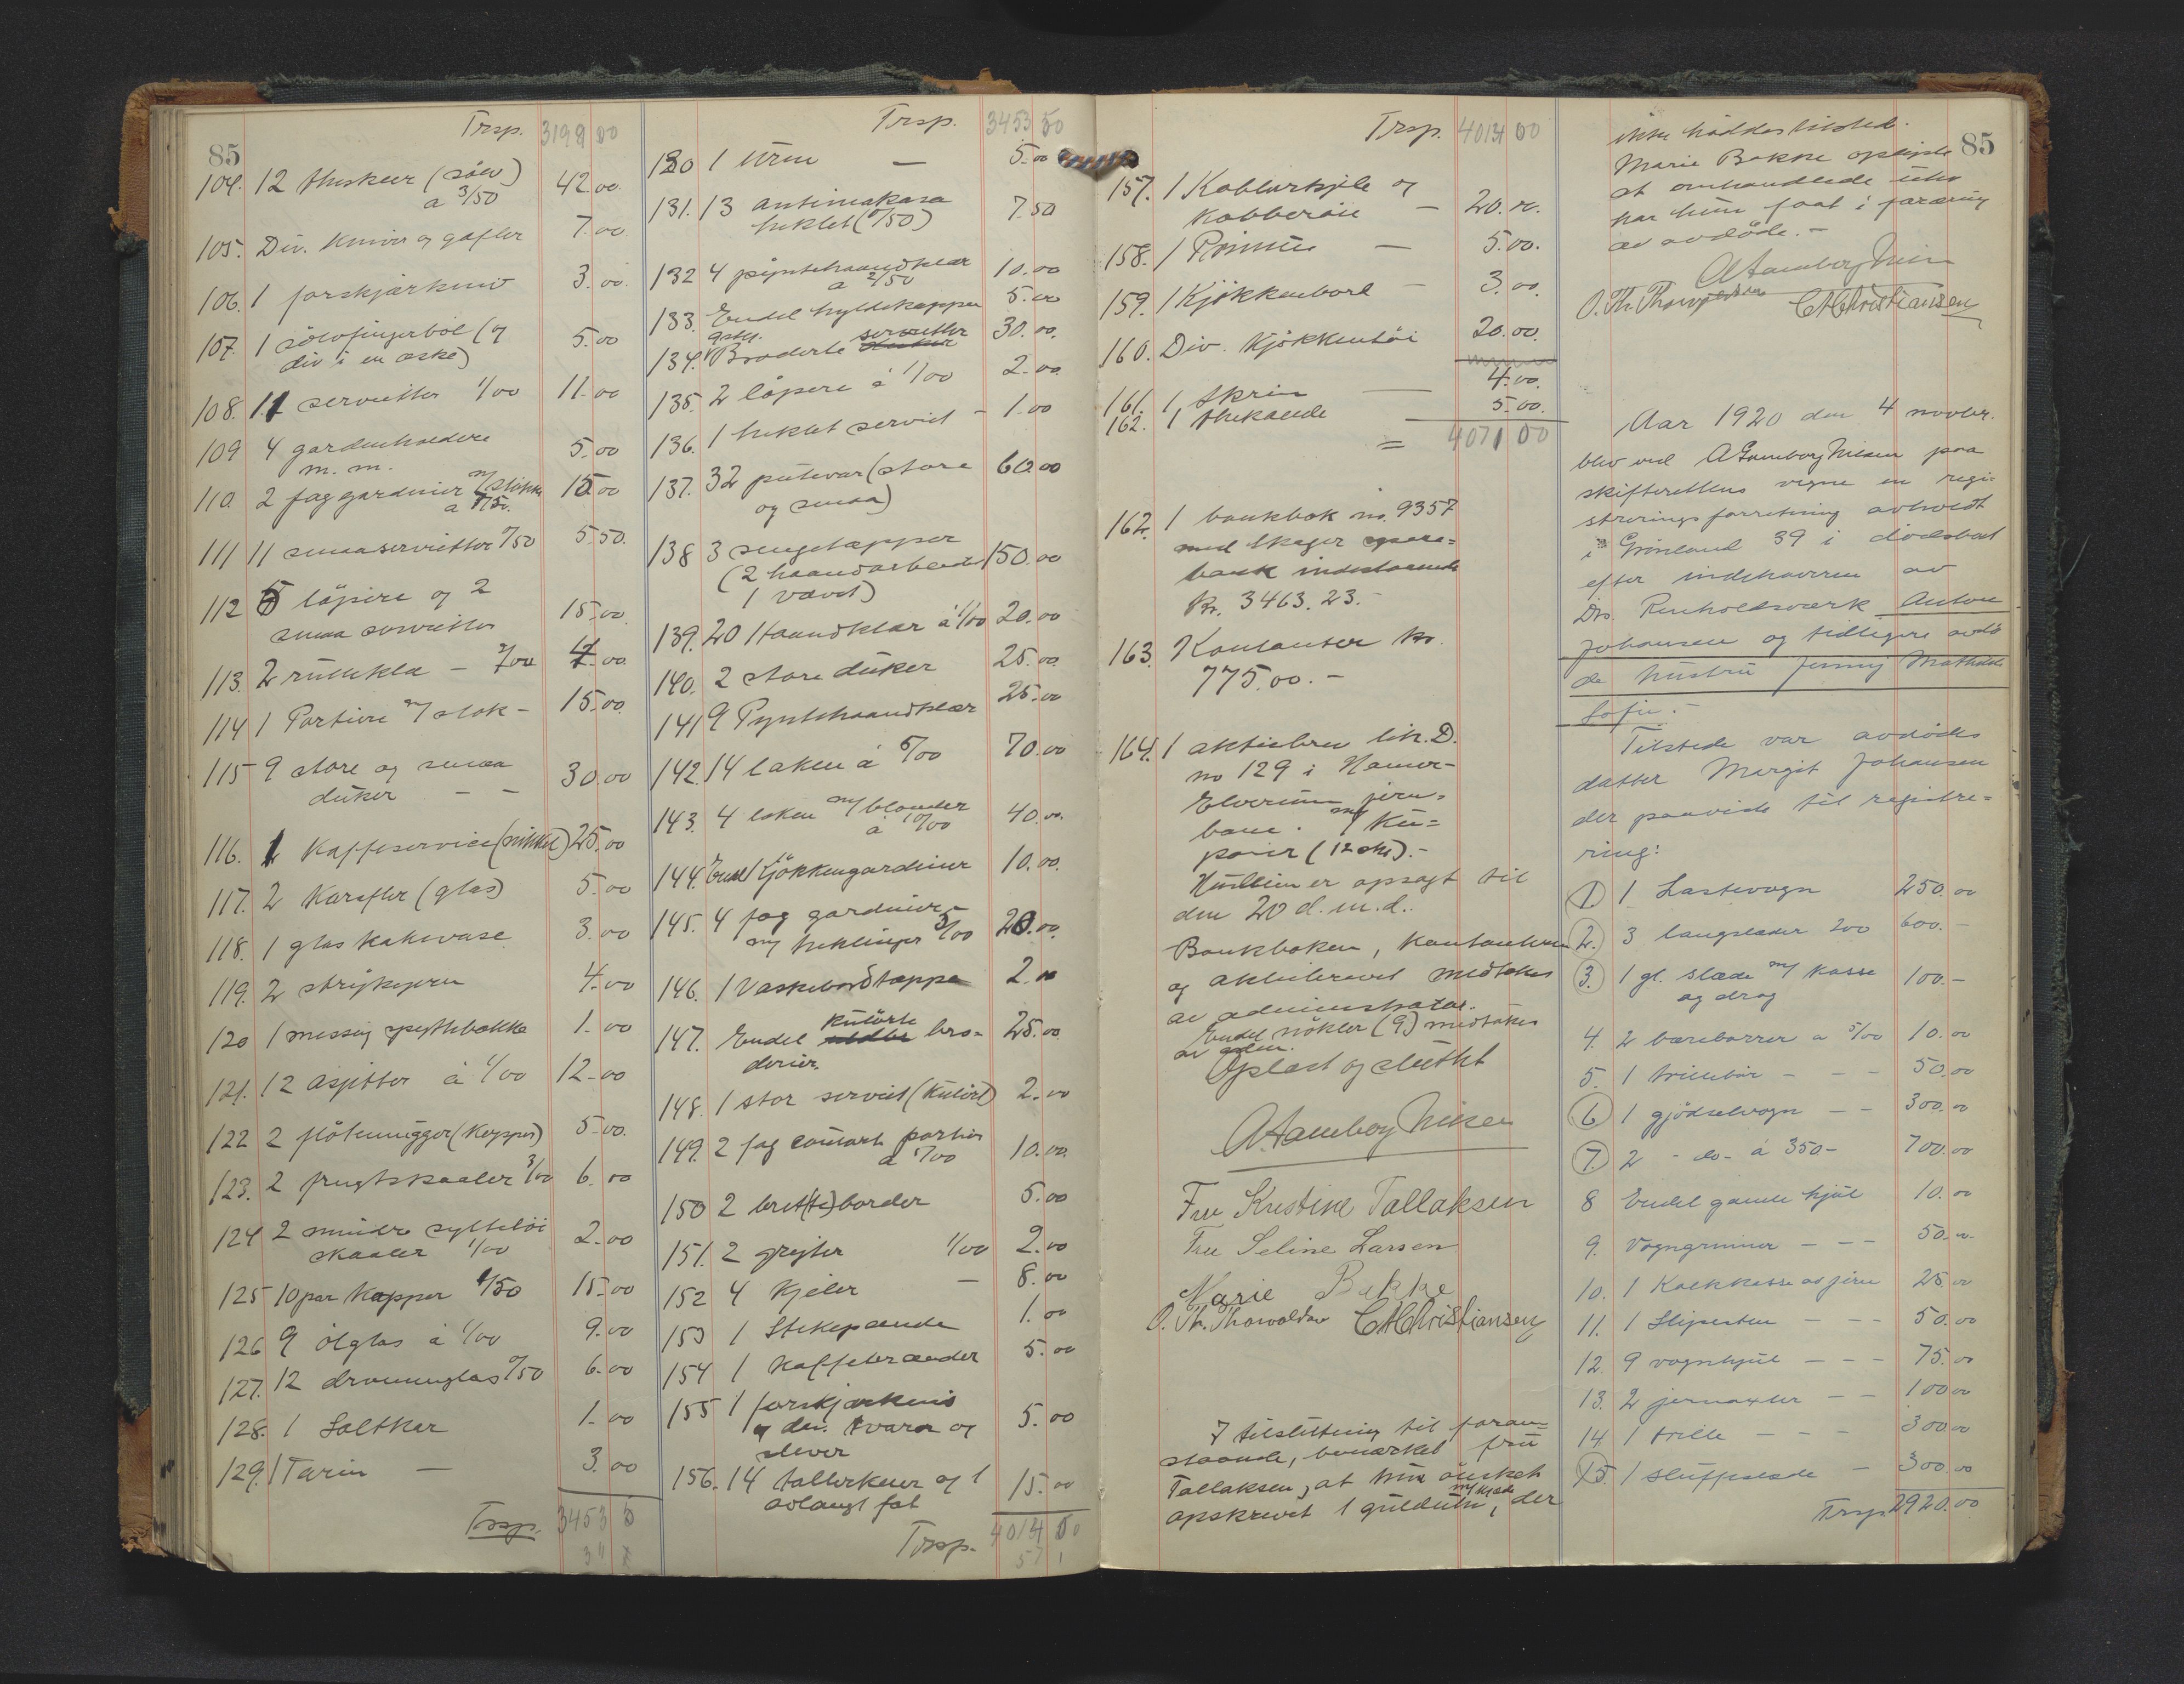 85
Trsp. 3199 00
104. 12 theskeer (sølv)
a 3/50 42.00
105. Div. kniver og gafler 7.00
106. 1 forskjærkniv 3.00
107. 1 sølvfingerbøl (og
div i en æske) 5.00
108. 11 servietter 1/00 11.00
109 4 gardinholdere
m. m. 5.00
110. 2 fag gardiner m/
a 7/50. 15.00
111 11 smaaservietter 0/50 5.50.
112 5 løpere og 2
smaa servietter 15.00
113. 2 rullekla - 2/00 4.00
114 1 Portiere m/ stok - 15.00
115 9 store og smaa
duker - - 30.00
116. 1 Kaffeservice (nikkel) 25.00
117. 2 Karafler (glas) 5.00
118. 1 glas kakevase 3.00
119. 2 strykejern 4.00
120 1 messing spyttebakke 1.00
121. 12 asjetter á 1/00 12.00
122 2 fløtemugger (Kopper) 5.00.
123. 2 frugtskaaler 3/00 6.00
124 2 mindre syltetøi
skaaler 1/00 2.00
125 10 par Kopper 1/50 15.00
126 9 ølglas á 1/00 9.00
127. 12 dramm glas 0/50 6.00
128. 1 Saltkar 1.00
129. 1 Terrin - 3.00
Trsp. 3453 5
Trsp. 3453 50
130 1 Urne - 5.00
131. 13 antimakasa
heklet (0/50) 7.50
132 4 pyntehaandklær
a 2/50 10.00
133. Endel hyldekapper 5.00
134. Broderte servietter 30.00.
135. 2 løpere á 1/00 2.00
136. 1 heklet serviet - 1.00
137. 32 putevar (store
og smaa) 60.00
138 3 sengetæpper
(2 haandarbeidet
1 vævet) 150.00
139. 20 Haandklær á 1/00 20.00
140. 2 store duker 25.00
141 9 Pyntehaandklær 25.00
142. 14 laken á 5/00 70.00
143. 4 laken m/ blonder
á 10/00 40.00.
144. Endel kjøkkengardiner 10.00.
145. 4 fag gardiner
m/ heklinger 5/00 20.00.
146. 1 Vaskebordtæppe 2.00
147. Endel kulørte bro-
derier. 25.00
148. 1 stor serviet (Kulørt) 2.00
149. 2 fag portier
a 5/00 10.00.
150 2 bret(te)border 5.00
151. 2 gryter 1/00 2.00
152 4 Kjeler - 8.00
153 1 Stekepande 1.00
154 1 Kaffebrænder 5.00
155 1 forskjærkniv
og div. tvarer og
slever 5.00
156. 14 tallerkener og 1
avlangt fat 15.00
Trsp. 4014 00
Trsp. 4014 00
157. 1 Kobberkjele og
Kobberøse - 20.00.
158. 1 Primus - 5.00.
159. 1 Kjøkkenbord - 3.00.
160. Div. Kjøkkentøi 20.00.
161. 1 Skrin 4.00.
162. 1 thekande 5.00.
= 4071 00
162. 1 bankbok no. 9357
med Skager spare-
bank indestaaende
Kr. 3463.23.-
163. Kontanter kr.
775.00.-
164. 1 aktiebrev litr. D.
no 129 i Hamar-
Elverum jern-
bane. m/ Ku-
poner (12 stk).-
Husleien er opsagt til
den 20 d.m.d.
Bankboken, kontanterne
og aktiebrevet medtokes
av administrator.
Endel nøkler (9) medtokes
av
Oplæst og sluttet
Fru Kristine Tallaksen
Fru Seline Larsen
Marie Bakke
O. Th. Thorvaldsen C A Christiansen
I tilslutning til foran-
staaende, bemærket fru
Tallaksen, at hun ønsket
opskrevet 1 guldur m/ kjede, der
85
ikke haddes tilsted.
Marie Bakke oplyste
at omhandlede uhr
har hun faat i foræring
av avdøde.-
O. Th. Thorvaldsen C A Christiansen
Aar 1920 den 4 novbr.
blev ved paa
skifterettens vegne en regi-
streringsforretning avholdt
i Grønland 39 i dødsboet
efter indehaveren av
Renholdsverk Anton
Johansen og tidligere avdø
de hustru Jenny Mathilde
Sofie.-
Tilstede var avdødes
datter Margit Johansen
der paaviste til registre-
ring:
1. 1 Lastevogn 250.00
2. 3 langslæder 200 600.-
3. 1 gl. slæde m/ kasse
og drag 100.-
4. 2 bærebører a 5/00 10.00
5. 1 trillebør - - - 50.00
6 1 gjødselvogn - - 300.00
7. 2 - do - á 350- 700.00
8 Endel gamle hjul 10.00
9. Vogngrinner - - - 50.00
10. 1 Kalkkasse av jern 25.00
11. 1 Slipesten - - - 50.00
12. 9 vognhjul - - - 75.00
13. 2 jernaxler - - 100.00
14. 1 trille - - - 300.00
15. 1 sluffslæde - 300.00
Trsp. 2920.00